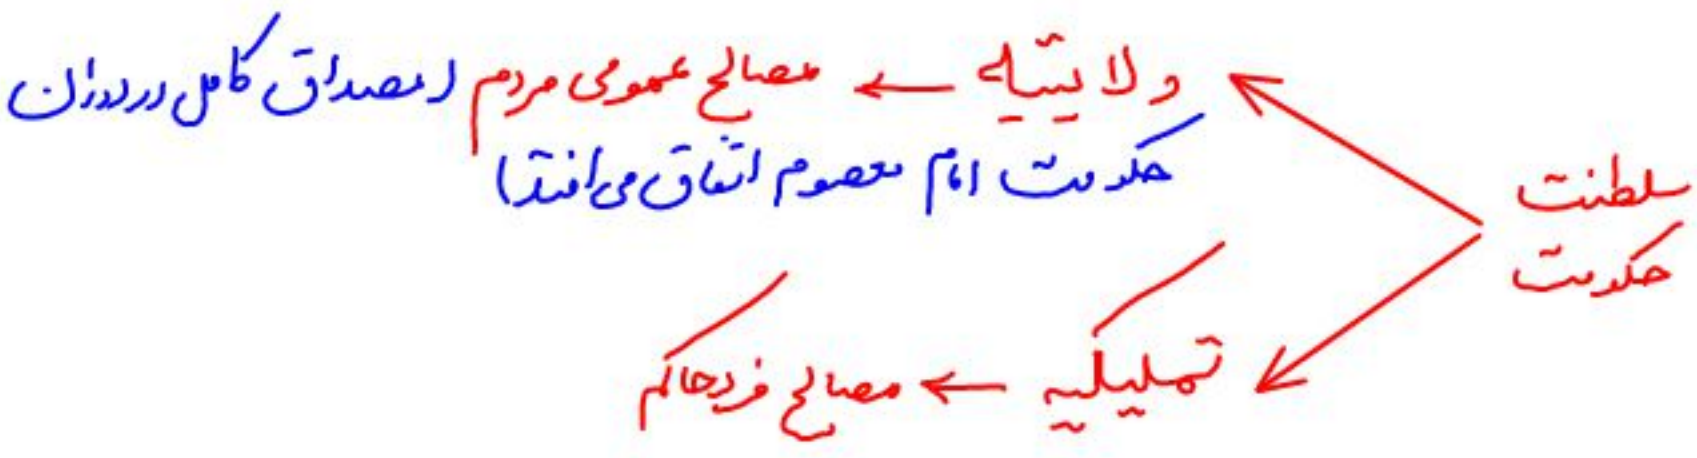 سلطنت
حکومت
ولایتیه ← مصالح عمومی مردم (مصداق کامل در دوران
حکومت امام معصوم اتفاق می‌افتد)
تملیکیه ← مصالح فرد حاکم